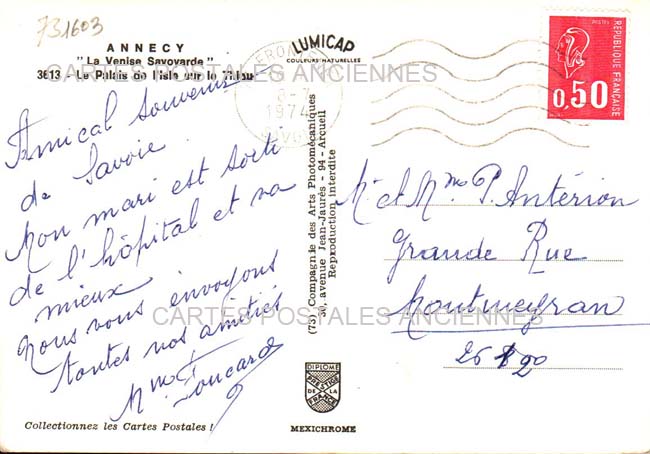 731603
ANNECY
" La Venise Savoyarde "
3613 - Le Palais de l'Isle sur le Thiou
LUMICAP
COULEURS NATURELLES
1974
POSTES
REPUBLIQUE FRANÇAISE
0,50
CARTES POSTALES ANCIENNES
Amical souvenir
de Savoie
Mon mari est sorti
de l'hôpital et va
mieux
Nous vous envoyons
toutes nos amitiés
Mme
(75) Compagnie des Arts Photomécaniques
30, avenue Jean-Jaurès - 94 - Arcueil
Reproduction interdite
Mr et Mme P. Antérion
Grande Rue
Montmeyran
CARTES POSTALES ANCIENNES
DIPLOME
PRESTIGE
DE LA
FRANCE
MEXICHROME
Collectionnez les Cartes Postales !